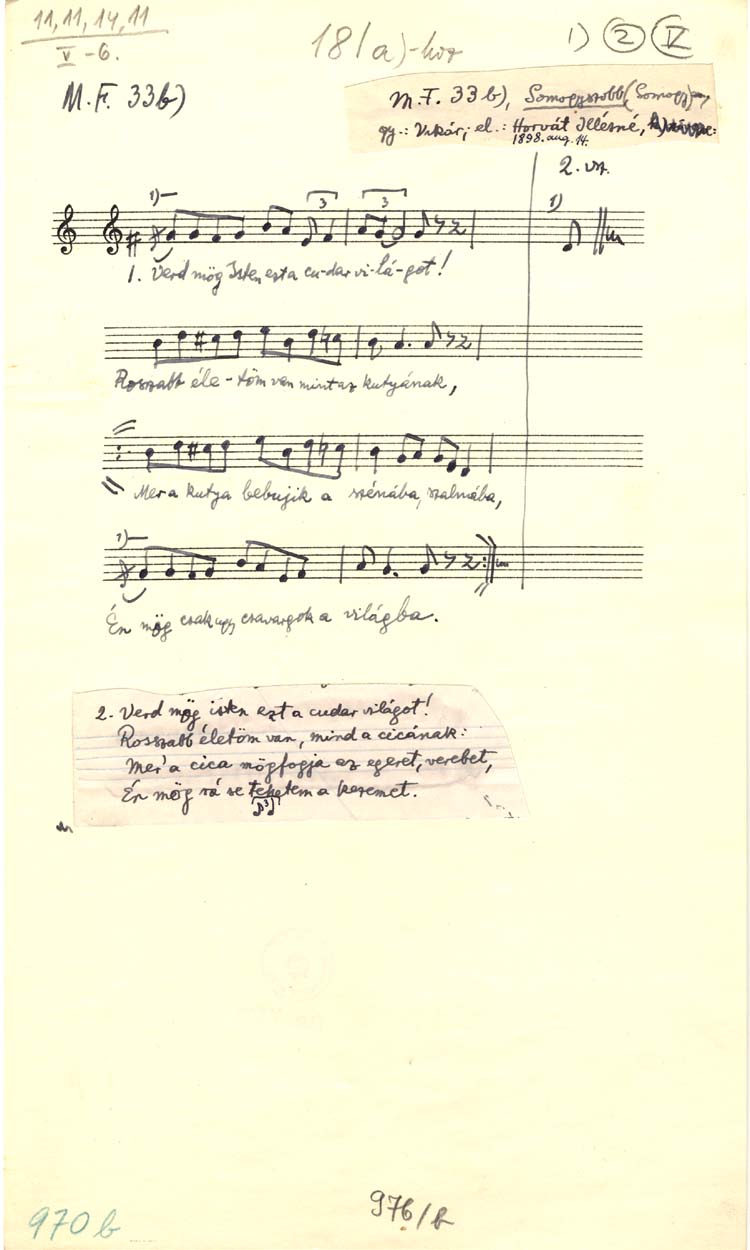 11, 11, 14, 11
V - 6.
18/a)-hoz
1) 2 IV
M.F. 33b)
M.F. 33b), Somogyszobb, (Somogy)
gy.: Vikár; el.: Horvát Illésné,
1898. aug. 14.
2. vsz.
1) 3 3 1)
1. Verd mög Isten ezt a cu-dar vi-lá-got!
Rosszabb éle-töm van mint az kutyának,
Mer a kutya bebujik a szénába, szalmába,
1)
Én mög csak ugy csavargok a világba.
2. Verd mög isten ezt a cudar világot!
Rosszabb életöm van, mind a cicának:
Mer' a cica mögfogja az egeret, verebet,
Én mög rá se tehetem a kezemet.
3
970 b
976/b